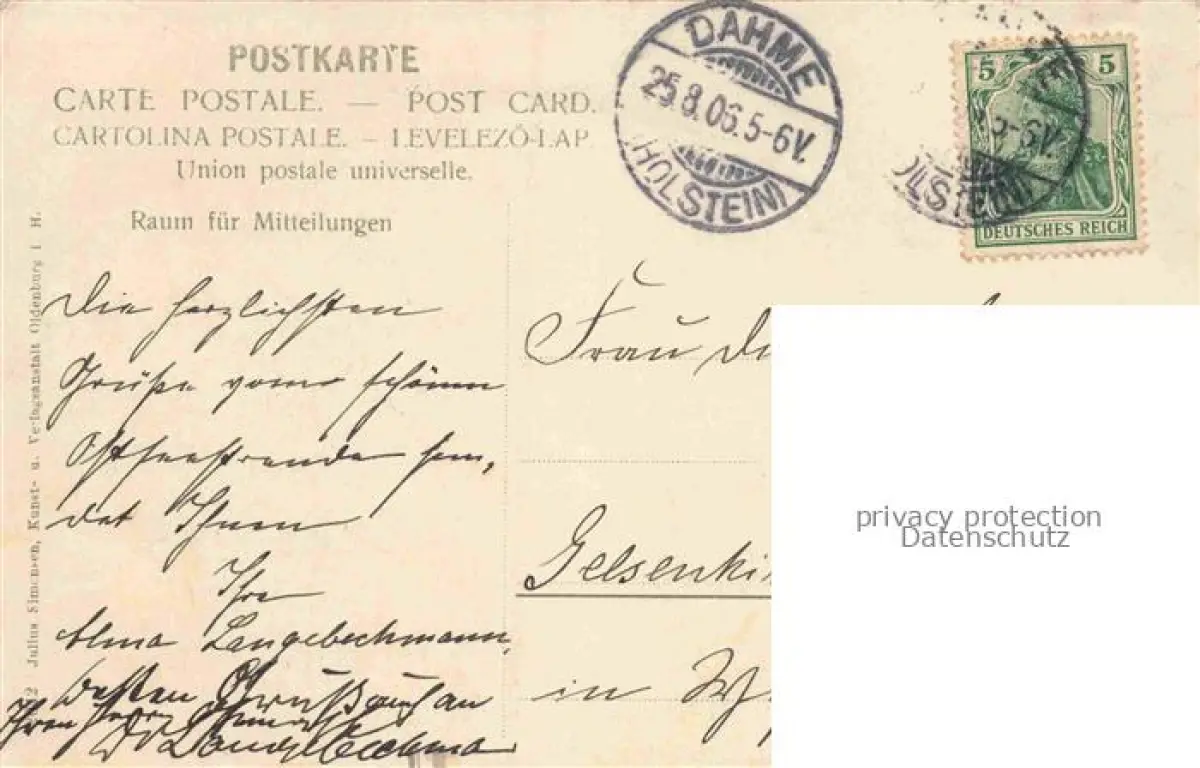 POSTKARTE
CARTE POSTALE. — POST CARD.
CARTOLINA POSTALE. — LEVELEZŐ-LAP
Union postale universelle.
Raum für Mitteilungen
DAHME
25.8.06.5-6V.
(HOLSTEIN)
5 5
5-6V.
OLSTEIN)
DEUTSCHES REICH
Die herzlichsten
Grüße vom schönen
Ostseestrande sen-
det Ihnen
Ihre
Alma Langebeckmann.
Besten Gruß auch an
Ihren Herrn
Frau D
Gelsenki
in W
privacy protection
Datenschutz
2 Julius Simonsen, Kunst- u. Verlagsanstalt Oldenburg i H.